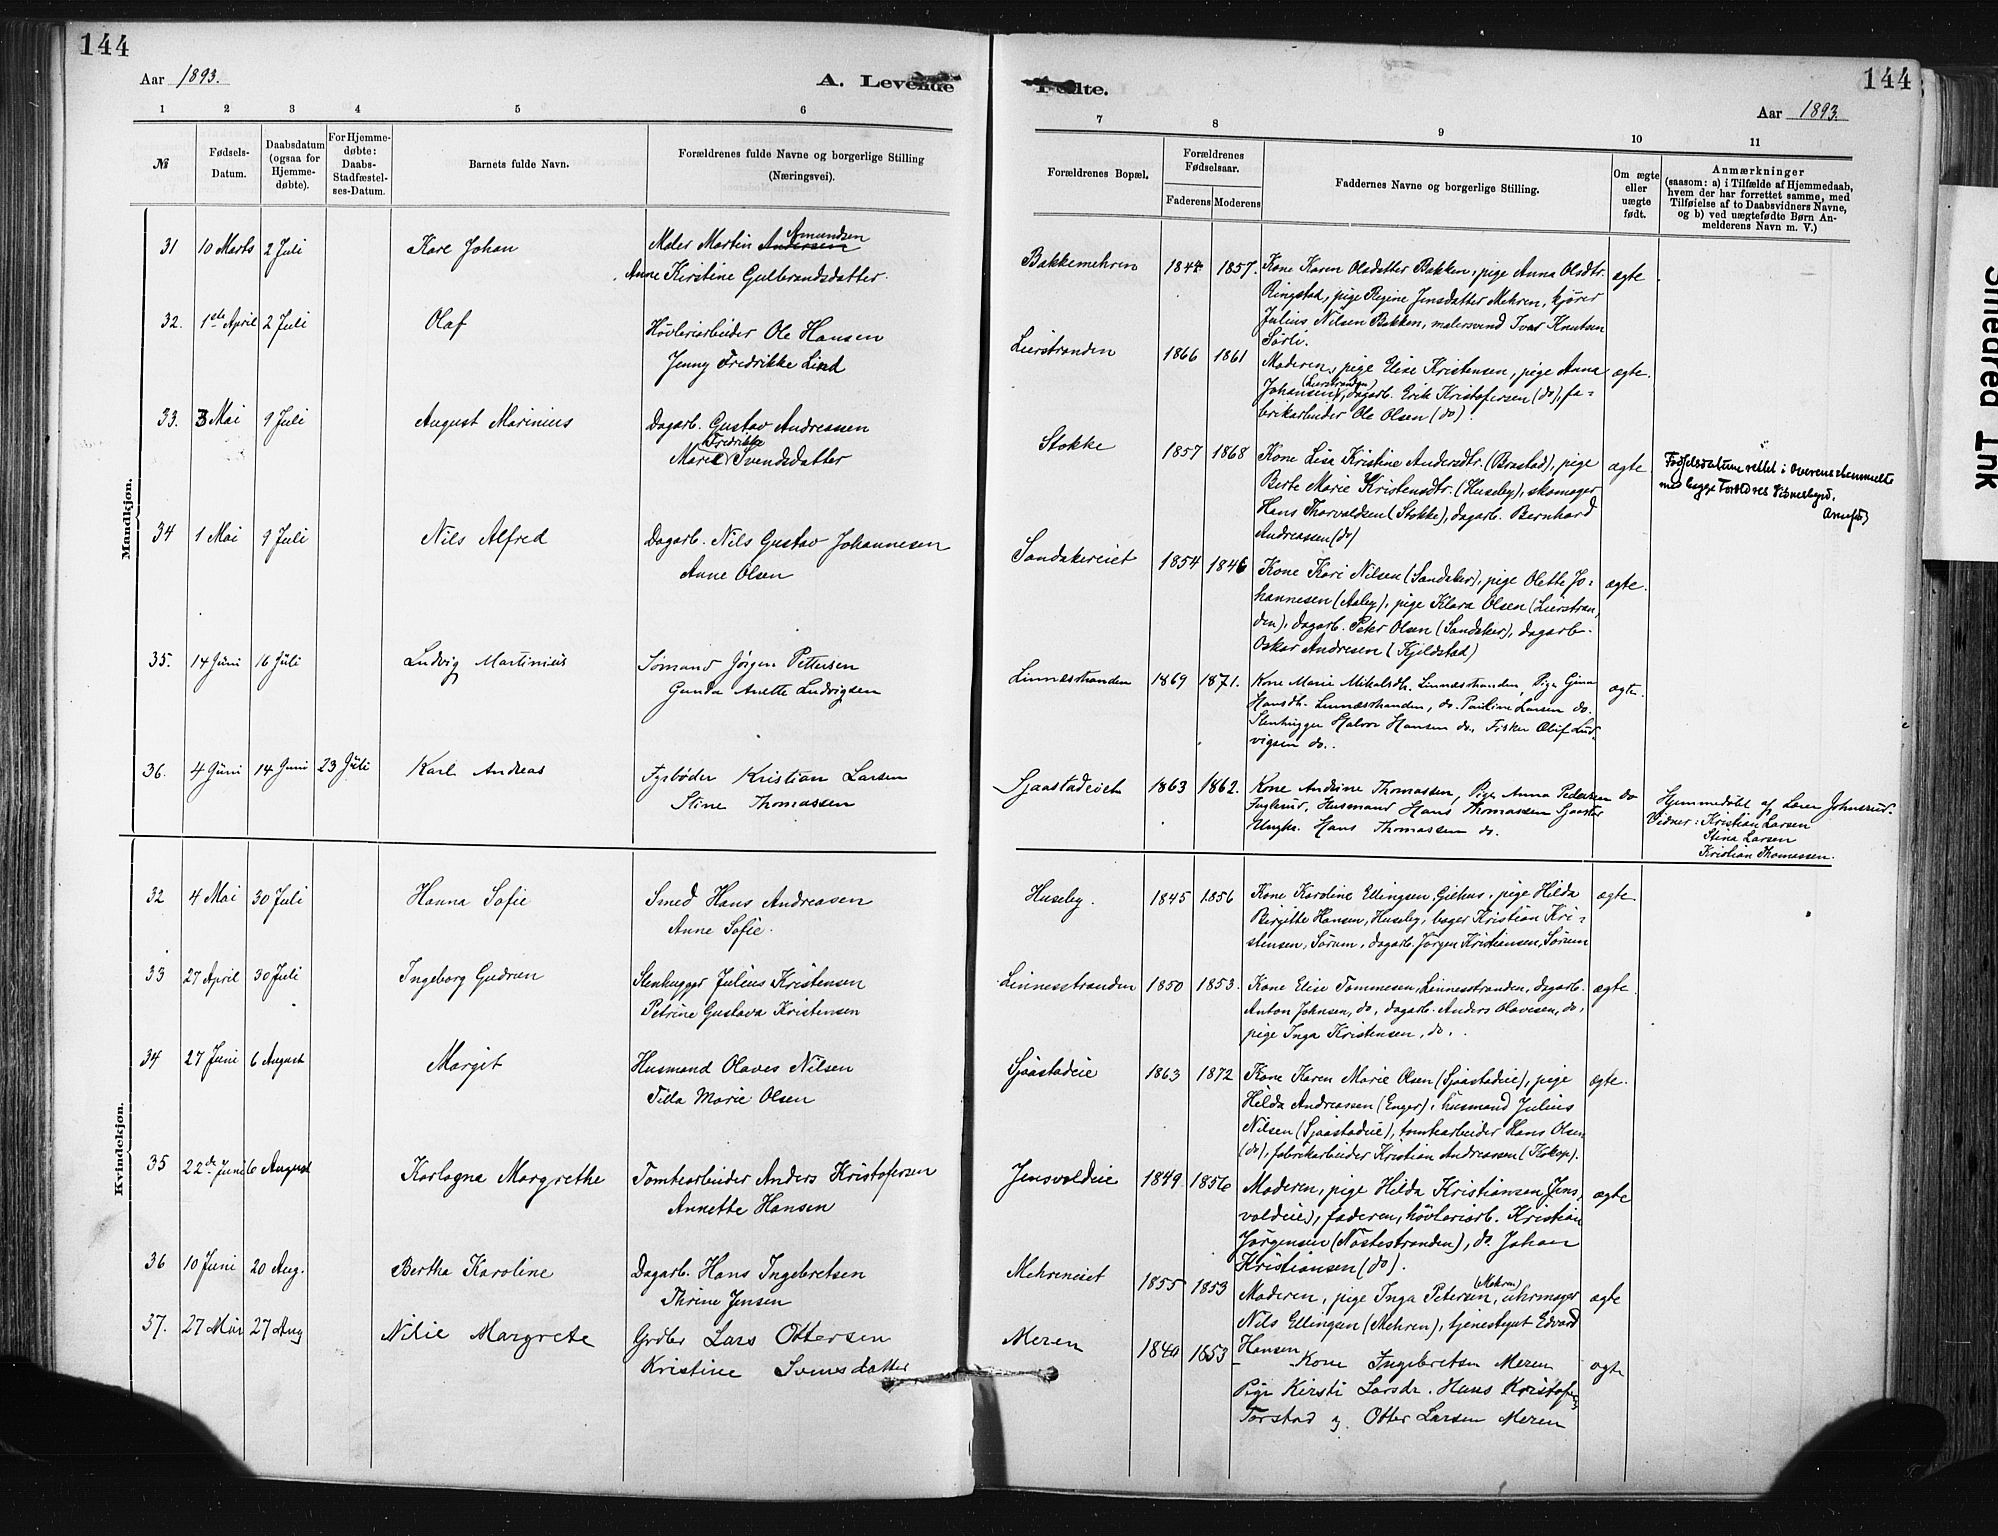 144
Aar 1893.
A. Levende
1 2 3 4 5 6
№
Fødsels-
Datum.
Daabsdatum
(ogsaa for
Hjemme-
døbte).
For Hjemme-
døbte:
Daabs-
Stadfæstel-
ses-Datum.
Barnets fulde Navn.
Forældrenes fulde Navne og borgerlige Stilling
(Næringsvei).
Mandkjøn.
31 10 Marts 2 Juli Kare Johan Maler Martin Andersen Amundsen
Anne Kirstine Gulbrandsdatter.
32. 1ste April 2 Juli Olaf Høvleriarbeider Ole Hansen
Jenny Fredrikke Lind
33. 3 Mai 9 Juli August Marinius Dagarb. Gustav Andreassen
Fredrikke
Marie Svendsdatter
34 1 Mai 9 Juli Nils Alfred Dagarb. Nils Gustav Johannesen
Anne Olsen
35. 14 Juni 16 Juli Ludvig Martinius Sømand Jørgen Pettersen
Gunda Anette Ludvigsen
36. 4 Juni 14 Juni 23 Juli Karl Andreas Fyrbøder Kristian Larsen
Stine Thomassen
Kvindekjøn.
32 4 Mai 30 Juli Hanna Sofie Smed Hans Andreasen
Anne Sofie.
33 27 April 30 Juli Ingeborg Gudrun Stenhugger Julius Kristensen
Petrine Gustava Kristensen
34 27 Juni 6 August Margit Husmand Olaves Nilsen
Tilla Marie Olsen
35 22de Juni 6 August Karlagna Margrethe Tomtearbeider Anders Kristofersen
Annette Hansen
36 10 Juni 20 Aug. Bertha Karoline Dagarb. Hans Ingebretsen
Thrine Jensen
37. 27 Mai 27 Aug Nilie Margrete Grdbr Lars Ottersen
Kristine Svensdatter
Fødte.
144
Aar 1893.
7 8 9 10 11
Forældrenes Bopæl.
Forældrenes
Fødselsaar.
Faderens Moderens
Faddernes Navne og borgerlige Stilling.
Om ægte
eller
uægte
født.
Anmærkninger
(saasom: a) i Tilfælde af Hjemmedaab,
hvem der har forrettet samme, med
Tilføielse af to Daabsvidners Navne,
og b) ved uægtefødte Børn An-
melderens Navn m. V.)
Bakkemehren 1847 1857. Kone Karen Olsdatter Bakken, pige Anna Olsdtr. ægte.
Ringstad, pige Regine Jensdatter Mehren, kjører
Julius Nilsen Bakken, malersvend Ivar Knutsen
Sørli.
Lierstranden 1866 1861 Moderen, pige Elise Kristensen, pige Anna ægte.
Johansen (Lierstranden), dagarb. Erik Kristofersen (do), fa-
brikarbeider Ole Olsen (do)
Stokke 1857 1868 Kone Lise Kristine Andersdtr. (Brastad), pige ægte
Berte Marie Kristensdtr. (Huseby), skomager
Hans Thorvaldsen (Stokke), dagarb. Bernhard
Andreassen (do)
Fødselsdatum rettet i overensstemmelse
med begge Forældres Vidnesbyrd.
Sandakereiet 1854 1846 Kone Kari Nilsen (Sandaker), pige Olette Jo- ægte.
hannesen (Aaby), pige Klara Olsen (Lierstran
den), dagarb. Peter Olsen (Sandaker), dagarb.
Oskar Andresen (Kjeldstad)
Linnæsstranden 1869 1871. Kone Marie Mikalsdtr. Linnæsstranden, Pige Gina ægte.
Hansdtr. Linnæsstranden, do. Pauline Larsen do.
Stenhugger Halvor Hansen do, Fisker Oluf Lud-
vigsen do.
Sjaastadeiet 1863 1862. Kone Andrine Thomassen, Pige Anna Pedersen do
Fuglerud, Husmand Hans Thomassen Sjaastad
Ungk. Hans Thomassen do.
Hjemmedøbt af Laur. Johnsrud.
Vidner: Kristian Larsen
Stina Larsen
Kristian Thomassen.
Huseby. 1845 1856 Kone Karoline Ellingsen, Gjehus, pige Hilda ægte
Birgitte Hansen, Huseby, bager Kristian Kri-
stensen, Sørum, dagarb. Jørgen Kristiansen, Sørum
Linnesstranden 1850 1853. Kone Elise Tommesen, Linnesstranden, dagarb. ægte.
Anton Johnsen, do, dagarb. Anders Olavesen, do,
pige Inga Kristensen, do.
Sjaastadeie 1863 1872 Kone Karen Marie Olsen (Sjaastadeie), pige ægte.
Hilda Andreassen (Enger), husmand Julius
Nilsen (Sjaastadeie), tomtearbeider Hans Olsen
(do), fabrikarbeider Kristian Andreassen (Kokop).
Jensvoldeie 1849 1856 Moderen, pige Hilda Kristiansen (Jens- ægte
voldeie), faderen, høvleriarb. Kristian
Jørgensen (Nøstestranden), do. Johan
Kristiansen (do).
Mehreneiet 1855 1853 Moderen, pige Inga Petersen (Mehren), uhrmager ægte
Nils Ellingsen (Mehren), tjenestegut Edvard
Hansen
Meren 1840 1853 Kone Ingebretsen Meren ægte
Pige Kirsti Larsdr. Hans Kristofers
Torstad og Otter Larsen Meren
Smedrød Ink